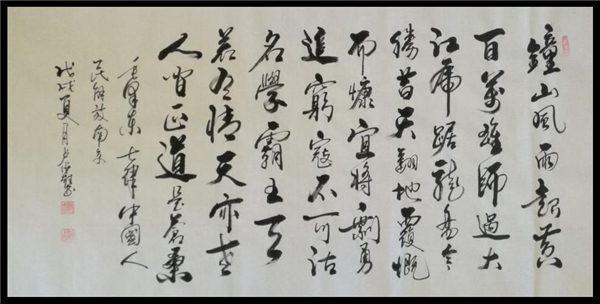 鐘山風雨起黃
百萬雄師過大
江虎踞龍盤今
勝昔天翻地覆慨
而慷宜將剩勇
追窮寇不可沽
名學霸王天
若有情天亦老
人間正道是蒼桑
毛澤東七律中國人
民解放南京
戊戌夏月